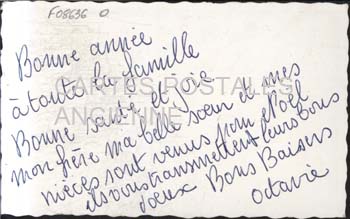 F08636 O
Bonne année
à toute la famille
Bonne santé et joie
CARTES POSTALES
ANCIENNES
mon frère ma belle sœur et mes
nièces sont venus pour Noël
ils vous transmettent leurs bons
vœux Bons Baisers
Octavie